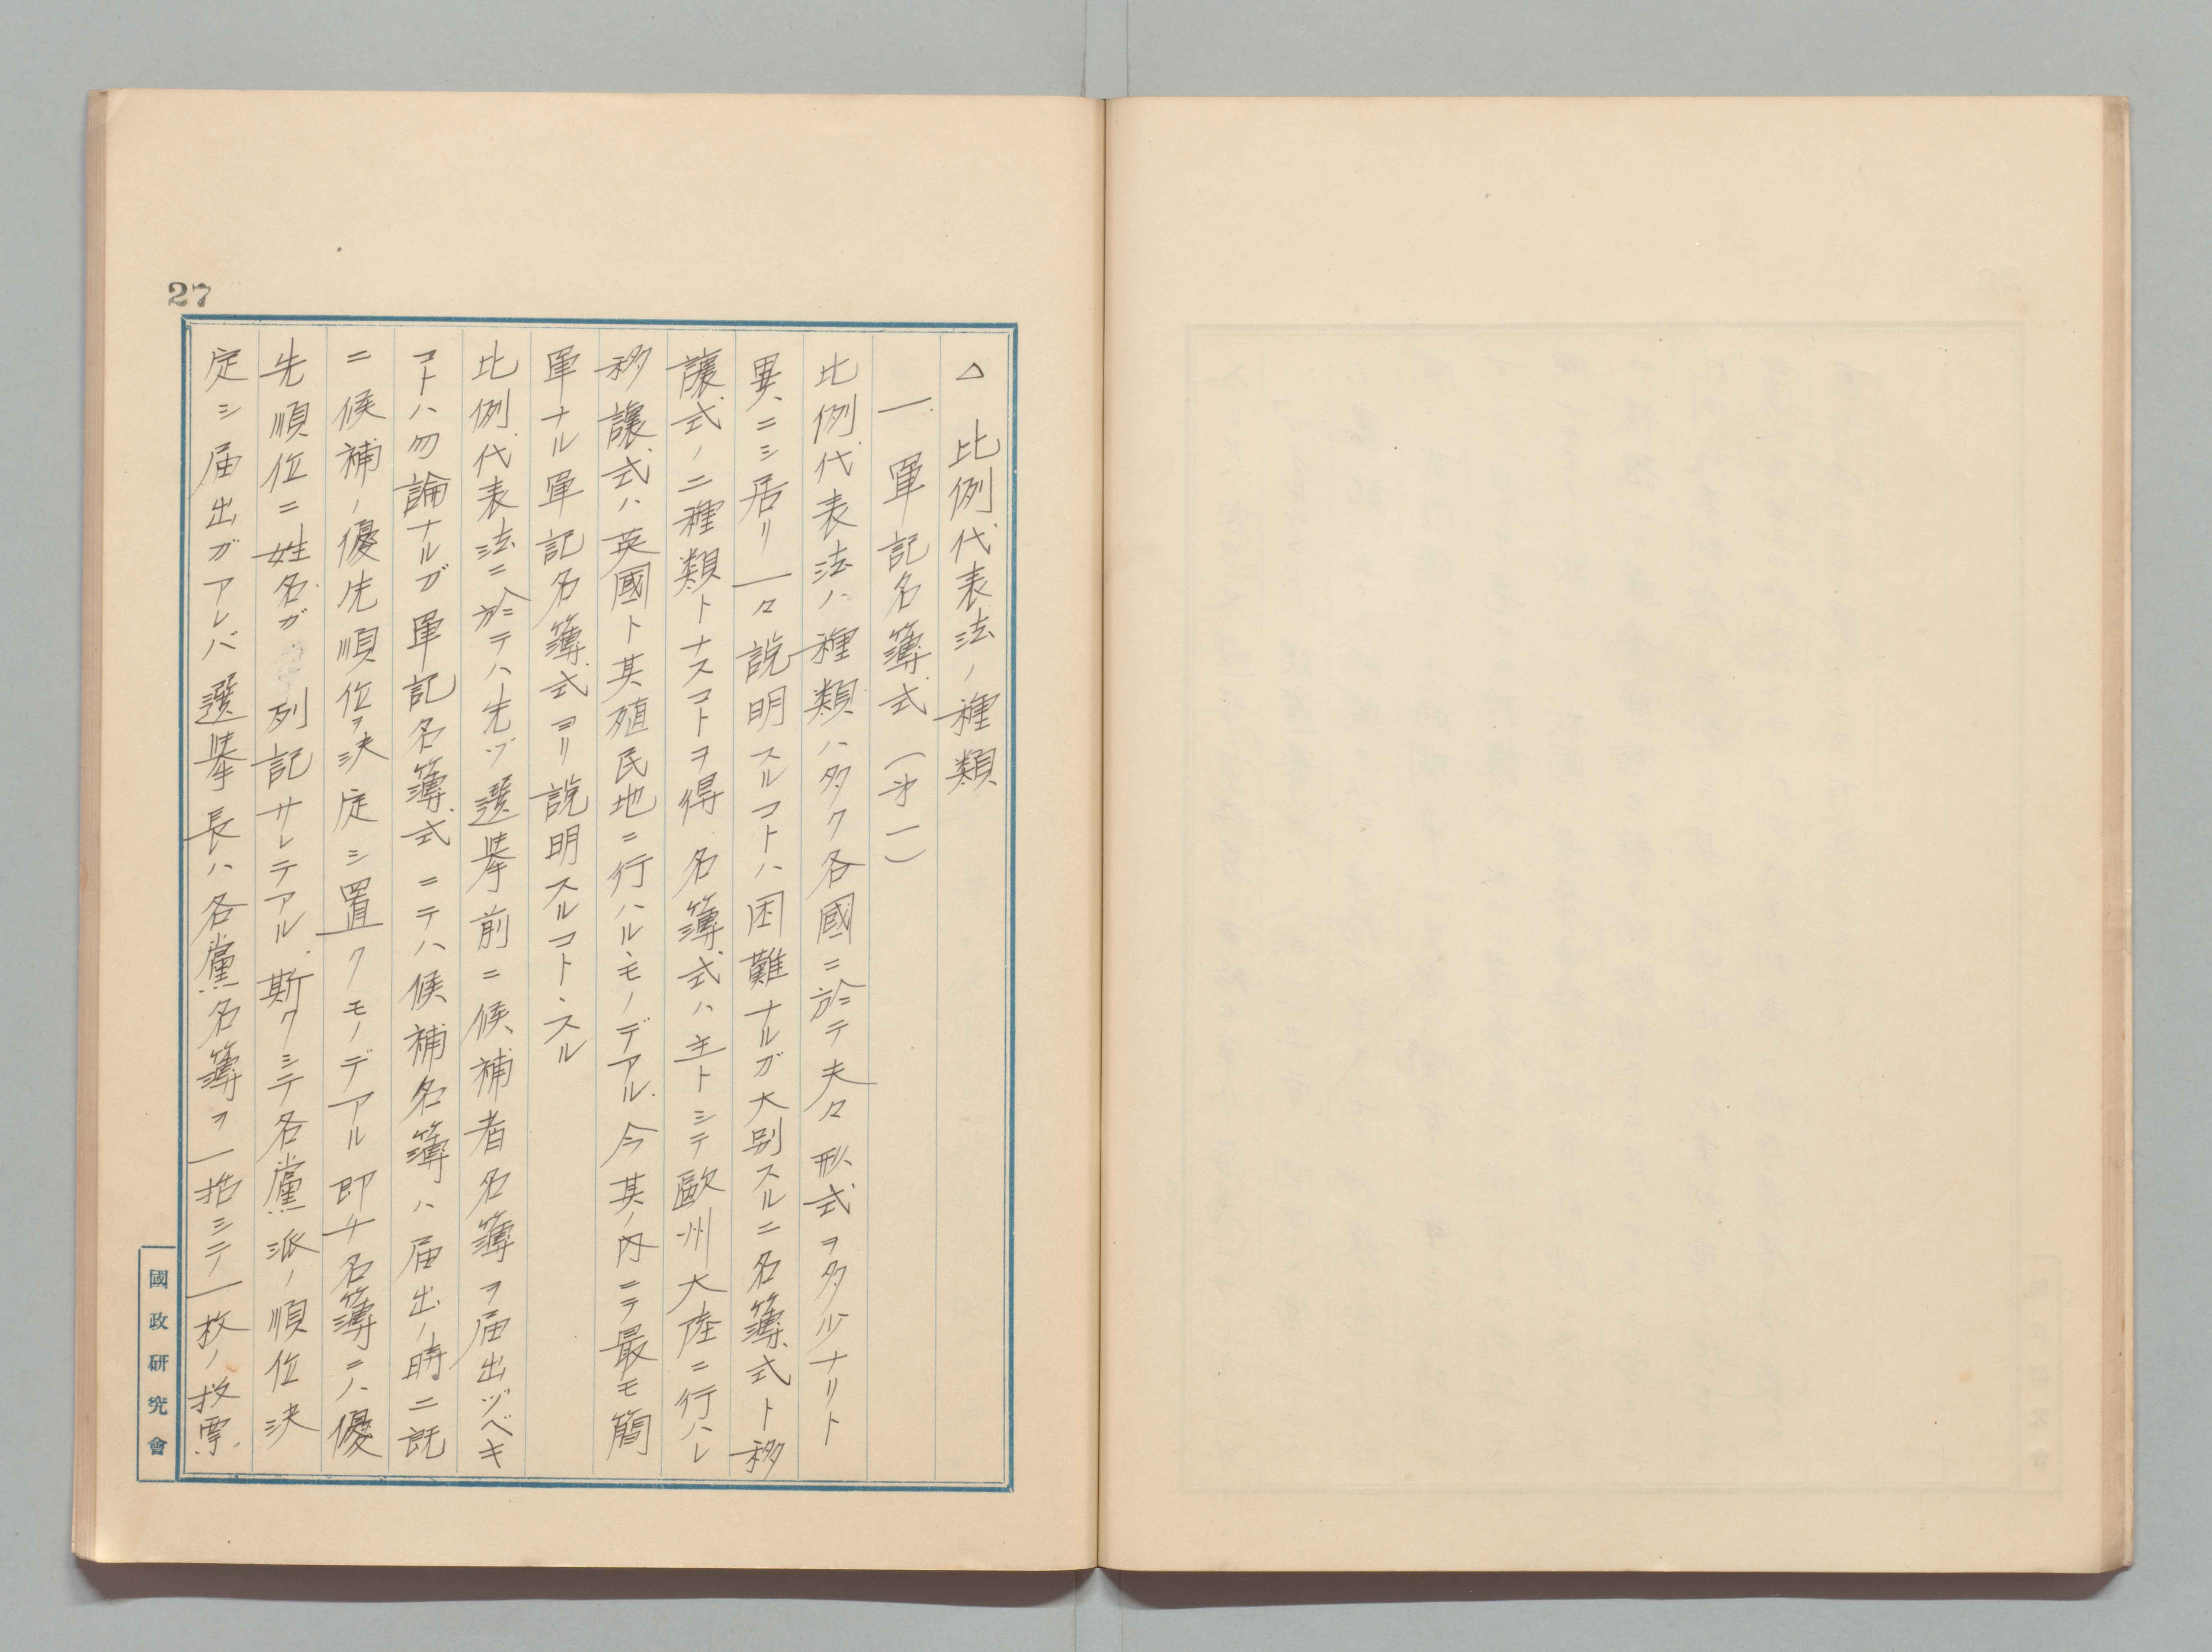 27
△ 比例代表法ノ種類
一. 單記名簿式 (第一)
比例代表法ノ種類ハ多ク各國ニ於テ夫々形式ヲ多少ナリト
異ニシ居リ一々説明スルコトハ困難ナルガ大別スルニ名簿式ト移
讓式ノ二種類トナスコトヲ得.名簿式ハ主トシテ歐州大陸ニ行ハレ
移讓式ハ英國ト其殖民地ニ行ハルヽモノデアル.今其ノ内ニテ最モ簡
單ナル單記名簿式ヨリ説明スルコトヽスル
比例代表法ニ於テハ先ヅ選擧前ニ候補者名簿ヲ届出ヅベキ
コトハ勿論ナルガ單記名簿式ニテハ候補名簿ハ届出ノ時ニ既
ニ候補ノ優先順位ヲ決定シ置クモノデアル即チ名簿ニハ優
先順位ニ姓名ガ列記サレテアル.斯クシテ各黨派ノ順位決
定シ届出ガアレバ選擧長ハ各黨名簿ヲ一括シテ一枚ノ投票
國政研究會